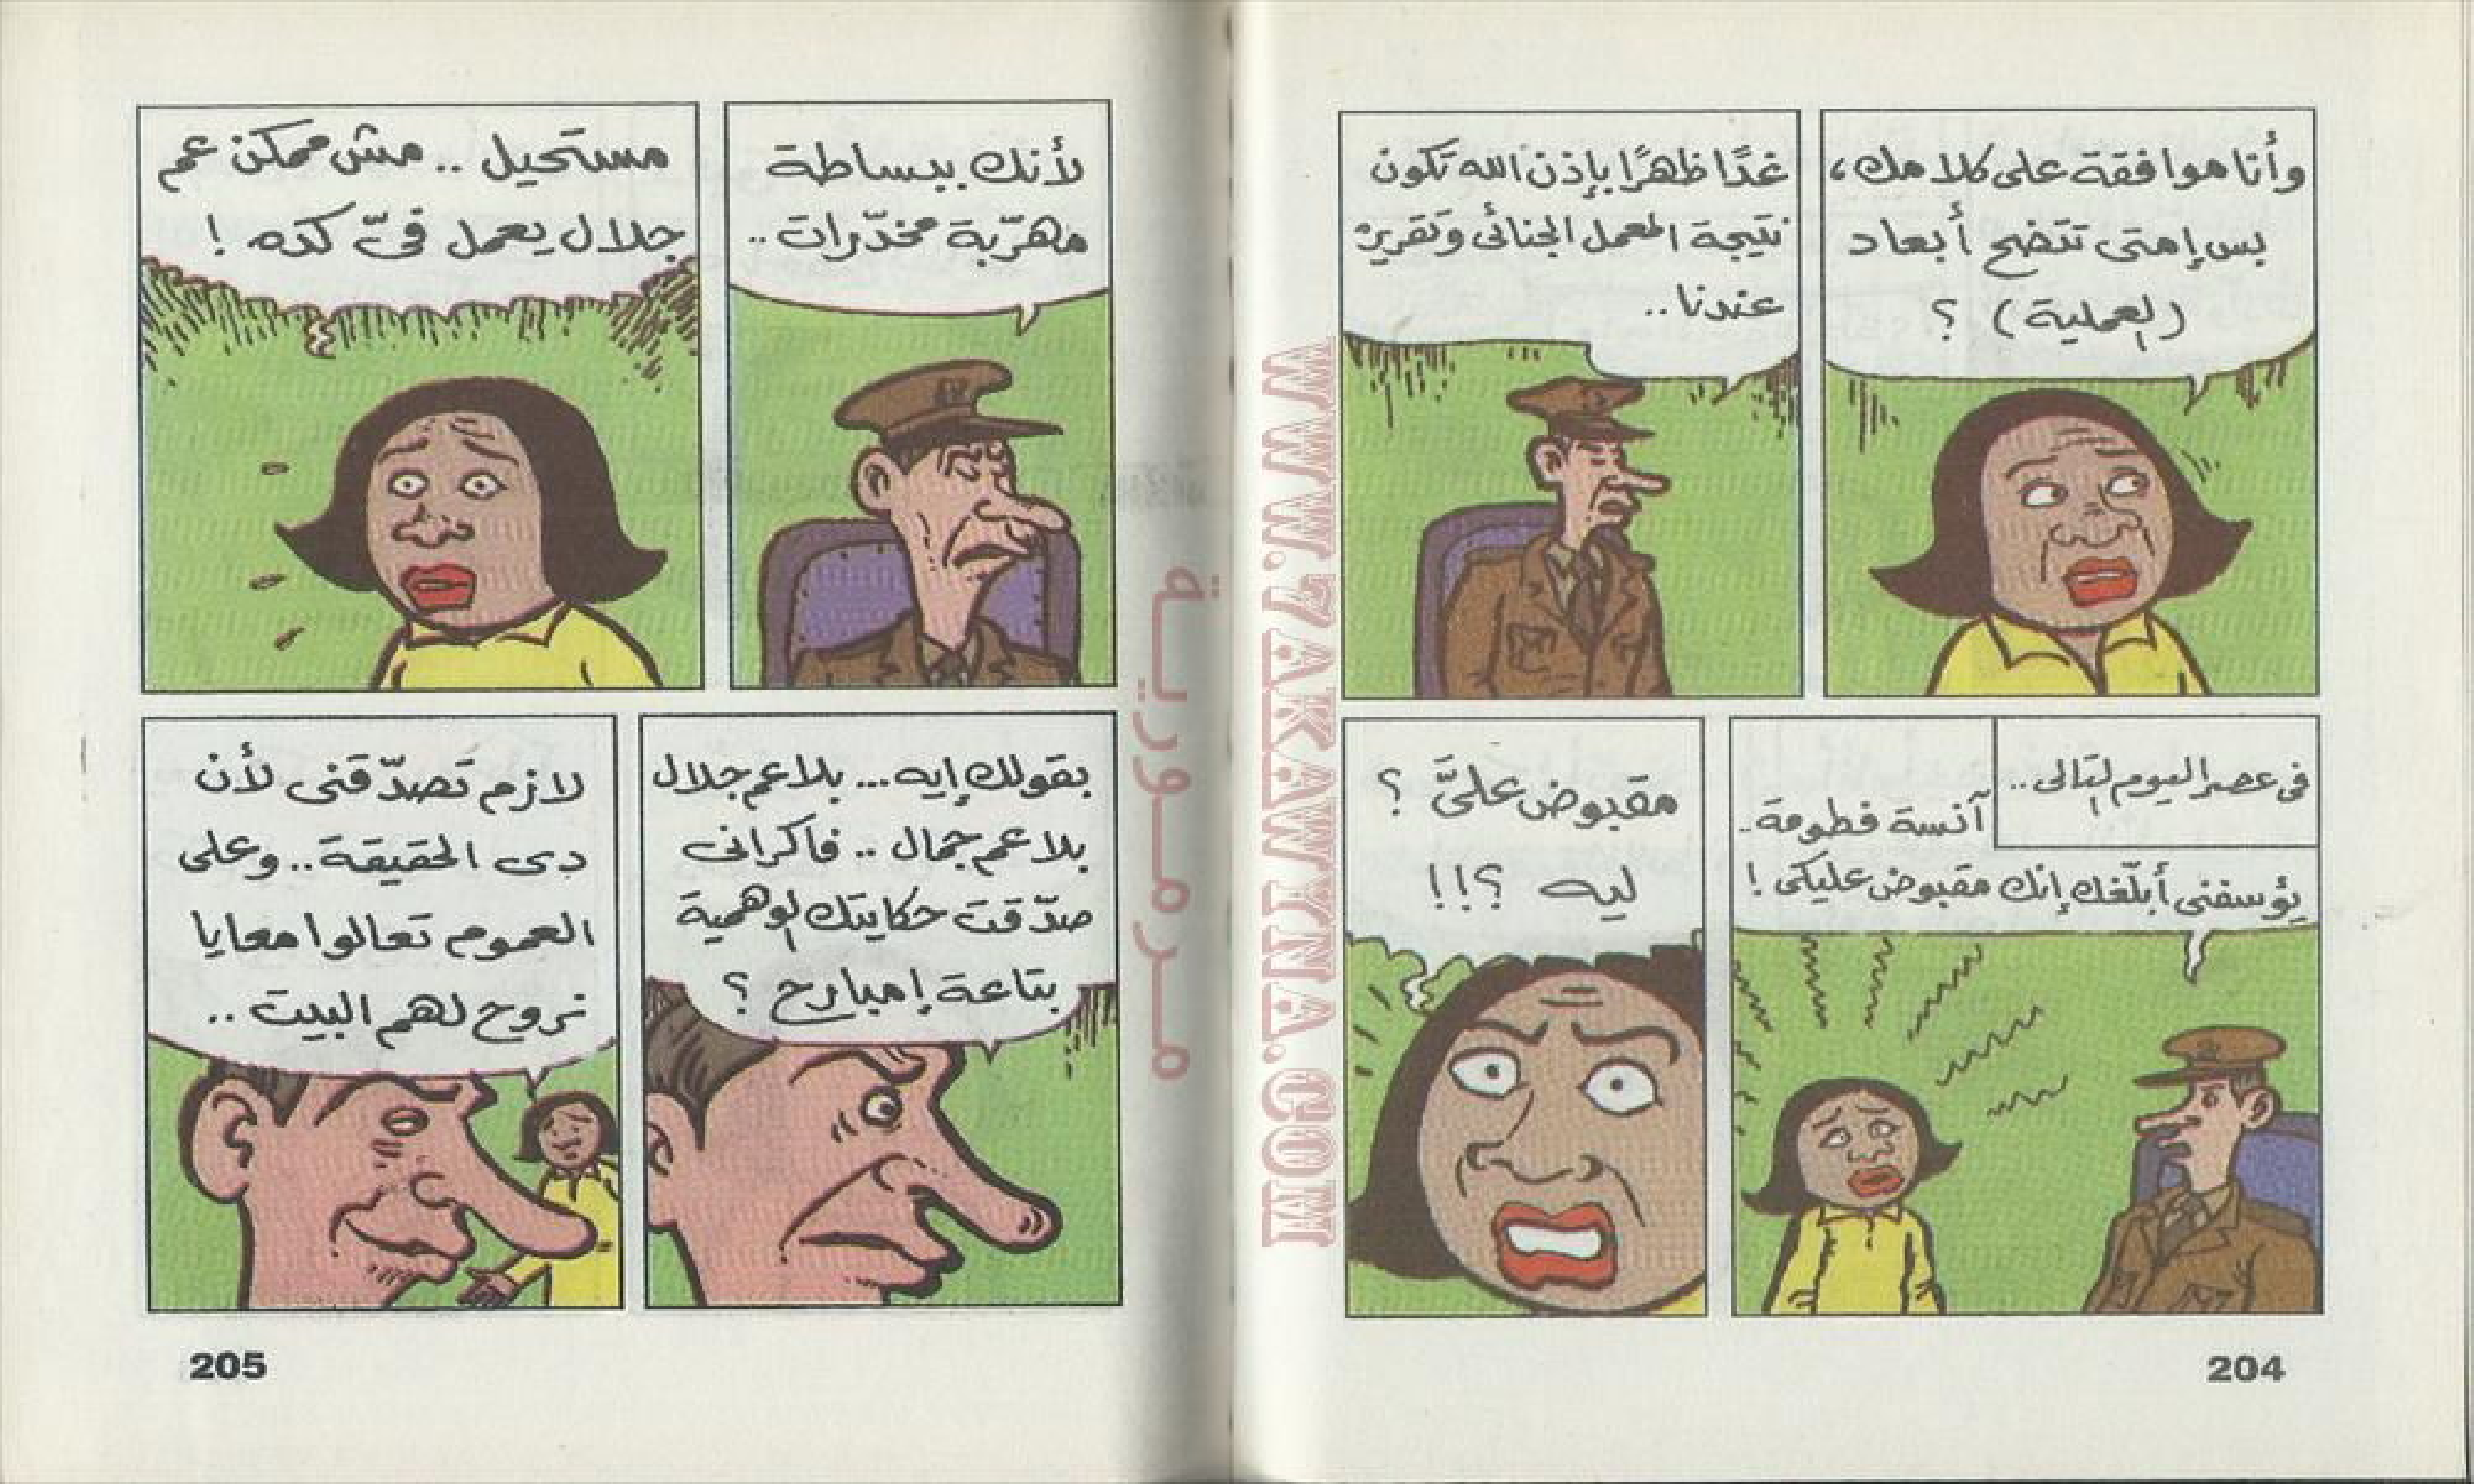 وأنا موافقة على كلامك،
بس إمتى تتضح أبعاد
(العملية) ؟
غدًا ظهرًا بإذن الله تكون
نتيجة المعمل الجنائى وتقريره
عندنا..
فى عصر اليوم التالى..
آنسة فطومة..
يؤسفنى أبلّغك إنك مقبوض عليكى !
مقبوض علىَّ ؟
ليه ؟!!
204
لأنك ببساطة
مهرّبة مخدّرات..
مستحيل .. مش ممكن عم
جلال يعمل فىّ كده !
بقولك إيه... بلا عم جلال
بلا عم جمال .. فاكرانى
صدّقت حكايتك الوهمية
بتاعة إمبارح ؟
لازم تصدّقنى لأن
دى الحقيقة.. وعلى
العموم تعالوا معايا
نروح لهم البيت ..
205
مرمورية
WWW.7AKAWYNA.COM